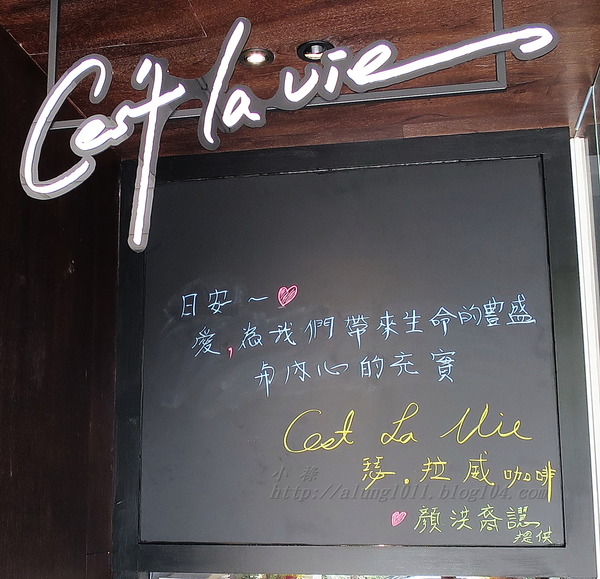 C'est la vie
日安～
愛,為我們帶來生命的豐盛
與內心的充實
C'est La Vie
瑟.拉威咖啡
小祿
http://alung1011.blog104.com
顏洪裔謹
提供